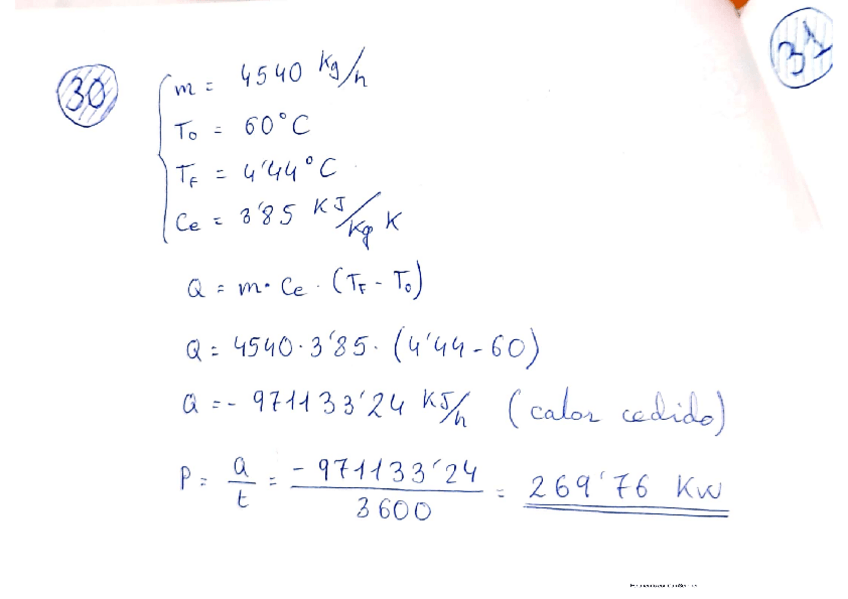 30
31
m = 4540 Kg/h
To = 60°C
TF = 4'44°C
Ce = 3'85 KJ/Kg K
Q = m · Ce · (TF - To)
Q = 4540 · 3'85 · (4'44 - 60)
Q = - 971133'24 KJ/h (calor cedido)
P = Q/t = - 971133'24/3600 = 269'76 Kw